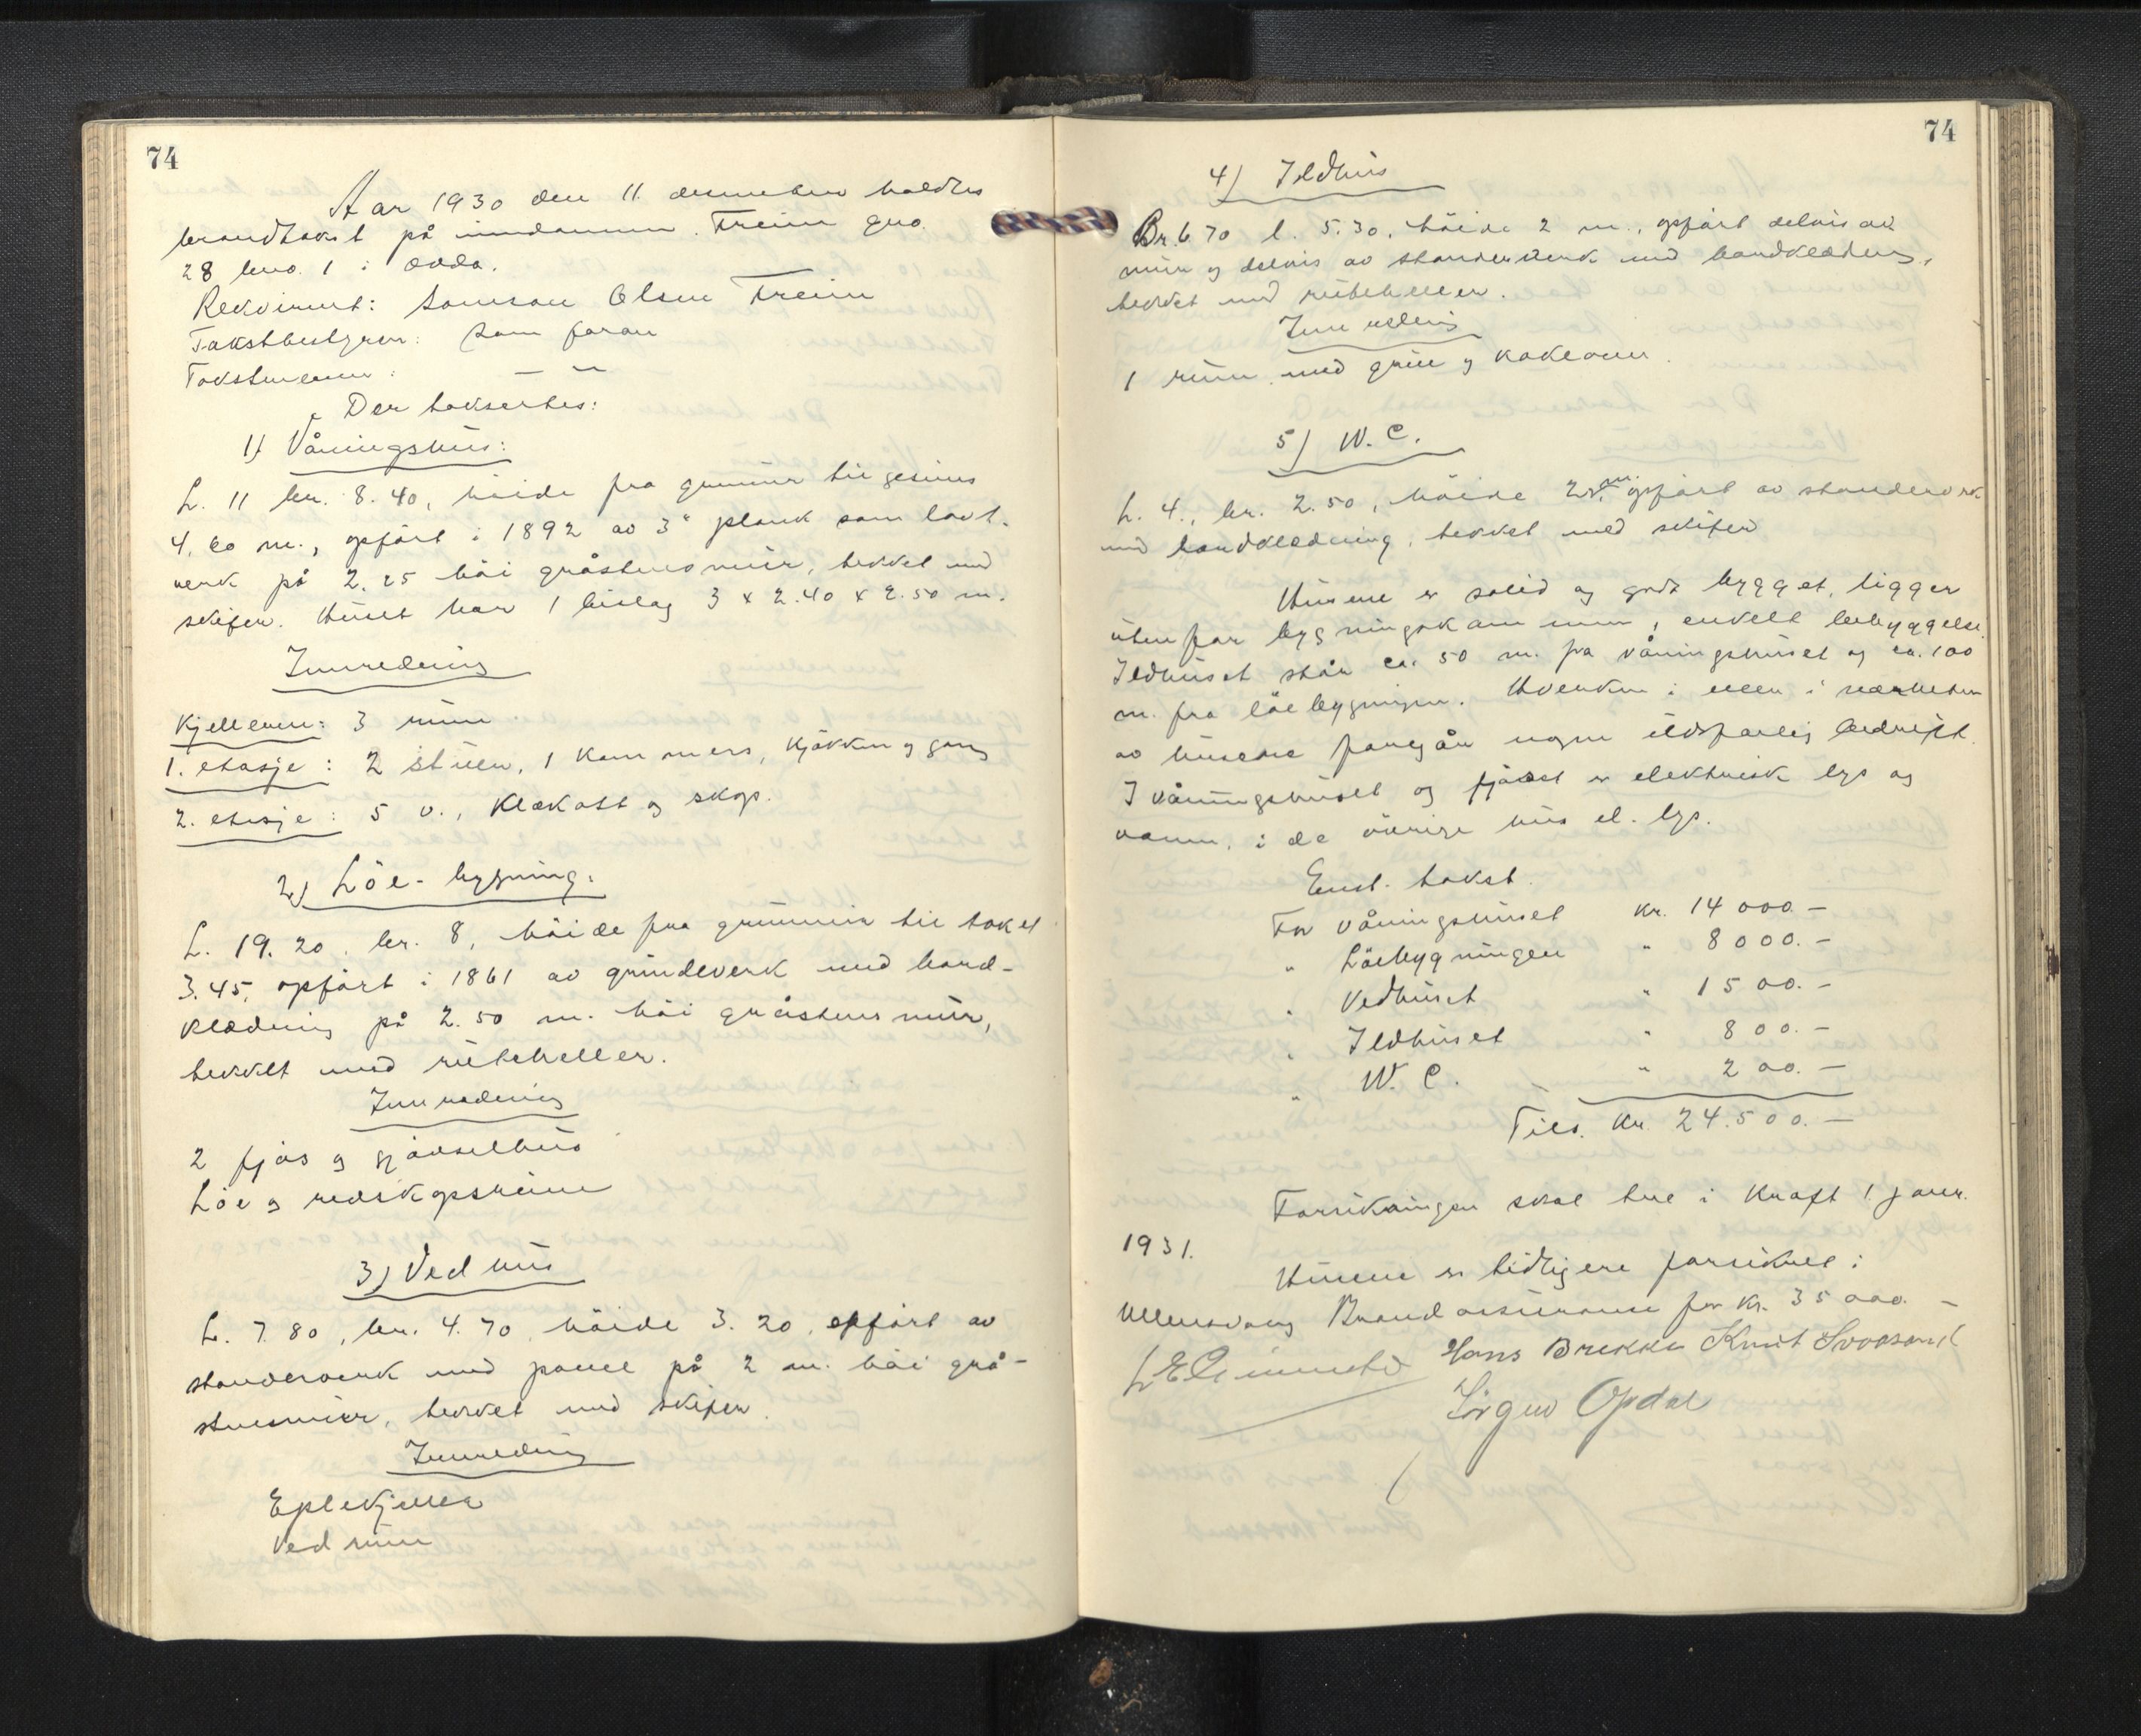 74
Aar 1930 den 11. desember holdtes
brandtakst på eiendommen Freim gno.
28 bno. 1 i Odda.
Rekvirent: Samson Olsen Freim
Takstbestyrer: Som foran
Takstmenn: — " —
Der takseertes:
1) Våningshus:
L. 11 br. 8.40, höide fra grunmur til gesims
4.60 m., opfört i 1892 av 3" plank som lavt-
verk på 2.25 höi gråstensmur, tekket med
skifer. Huset har 1 bislag 3 x 2.40 x 2.50 m.
Innredning
Kjelleren: 3 rum
1. etasje: 2 stuer, 1 kammers, kjökken og gang
2. etasje: 5 v., klækott og skap.
2) Löe-bygning:
L. 19.20, br. 8, höide fra grunmur til taket
3.45, opfört i 1861 av grindeverk med bord-
klædning på 2.50 m. höi gråstensmur,
tekket med ruteheller.
Innredning
2 fjös og gjödselhus
Löe og redskapsrum
3) Vedhus
L. 7.80, br. 4.70, höide 3.20, opfört av
stenderverk med panel på 2 m. höi grå-
stensmur, tekket med skifer.
Innredning
Eplekjeller
Vedrum
74
4) Ildhus
Br. 6.70 l. 5.30, höide 2 m., opfört delvis av
mur og delvis av stenderverk med bordklædning,
tekket med ruteheller.
Innredning
1 rum med grue og kokeovn.
5) W.C.
L. 4., br. 2.50, höide 2 m. opfört av stenderverk
med bordklædning, tekket med skifer
Husene er solid og godt bygget, ligger
utenfor bygningskommun, enkelt bebyggelse.
Ildhuset står ca. 50 m. fra våningshuset og ca. 100
m. fra löebygningen. Hverken i eller i nærheten
av husene foregår nogen ildsfarlig bedrift.
I våningshuset og fjöset er elektrisk lys og
vann, i de övrige hus el. lys.
Enst. takst.
For våningshuset kr. 14 000.—
" Löebygningen " 8 000.—
" Vedhuset " 1500.—
" Ildhuset " 800.—
" W.C. " 200.—
Tils. kr. 24.500.—
Forsikringen skal tre i kraft 1 januar
1931.
Husene er tidligere forsikret i
Ullensvang Brandassurance for kr. 35 000.—
Hans Brekke Knut
Jörgen Opdal